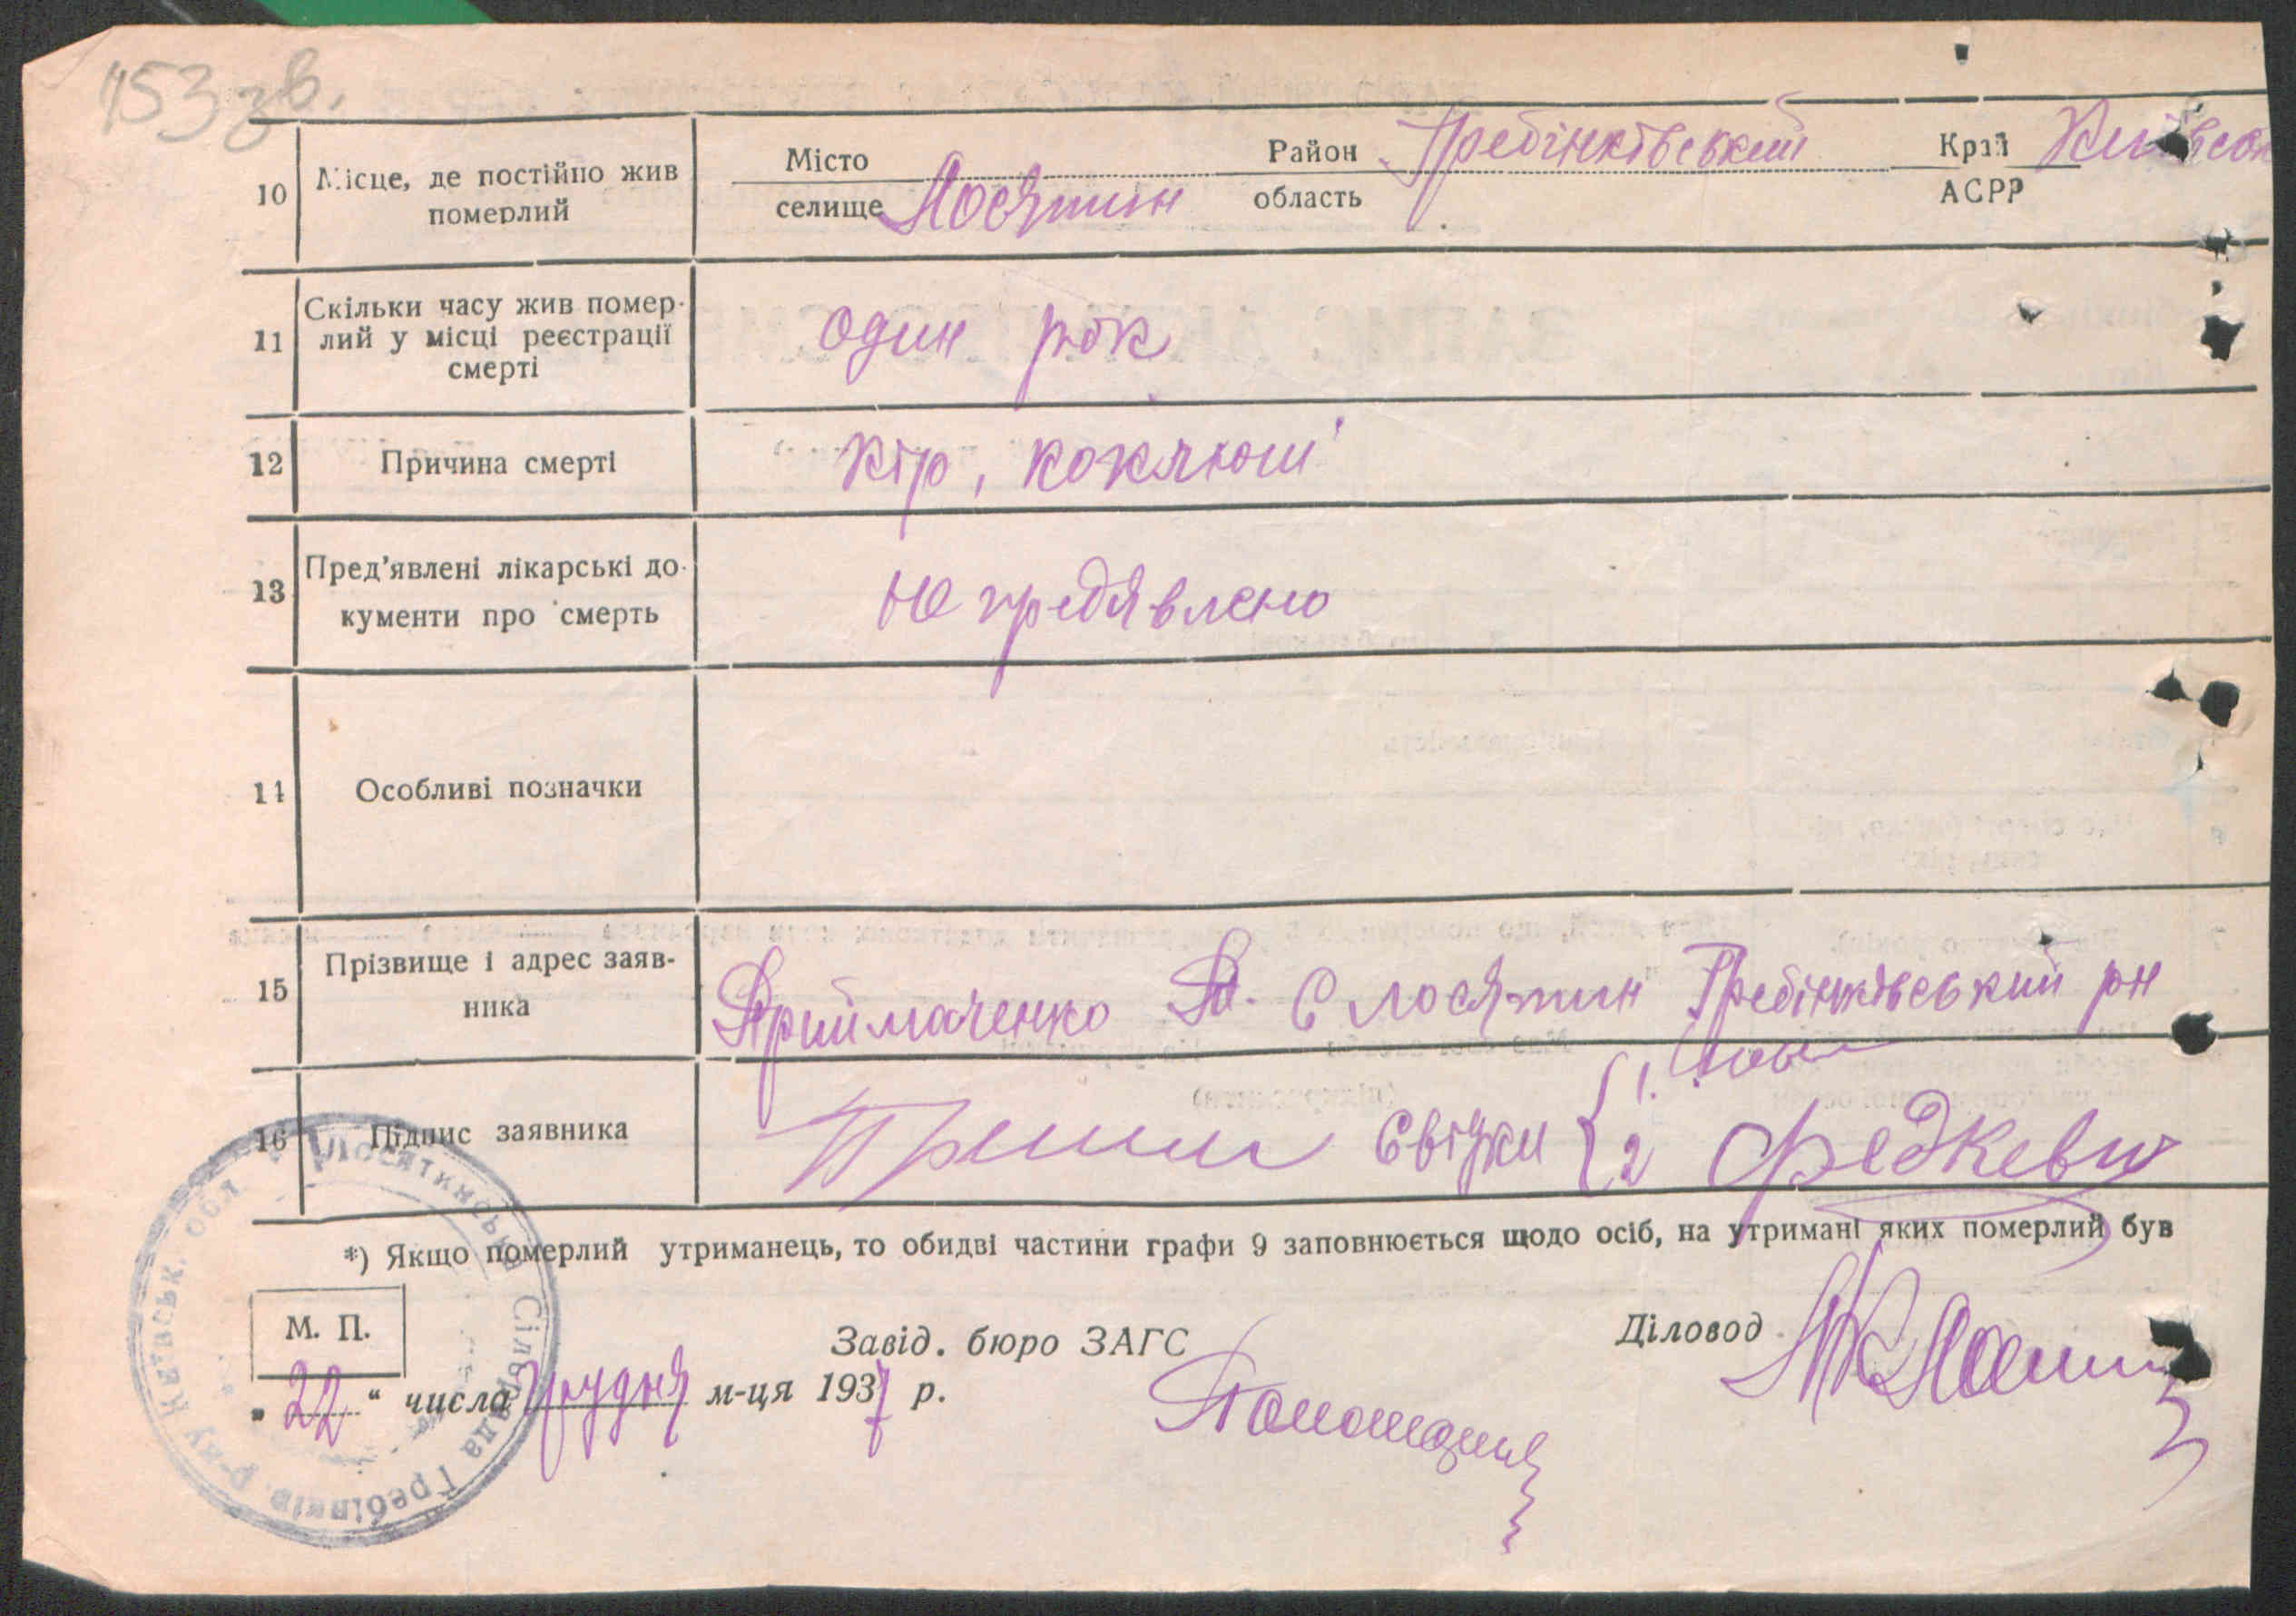 153 зв.
10 Місце, де постійно жив померлий
Місто селище Лосятин Район область Гребінківський Край АСРР Київськ
11 Скільки часу жив помер-
лий у місці реєстрації
смерті
один рок
12 Причина смерті
Кір, коклюш
13 Пред'явлені лікарські до-
кументи про смерть
не предявлено
14 Особливі позначки
15 Прізвище і адрес заяв-
ника
Приймаченко Я. С Лосятин Гребінківський рн
16 Підпис заявника
Свідки { 1.
2 Федкевич
*) Якщо померлий утриманець, то обидві частини графи 9 заповнюється щодо осіб, на утримані яких померлий був
М. П.
Завід. бюро ЗАГС
Діловод
„22“ числа Грудня м-ця 1937 р.
Лосятинська Сільрада Гребінків. р-ну Київськ. Обл